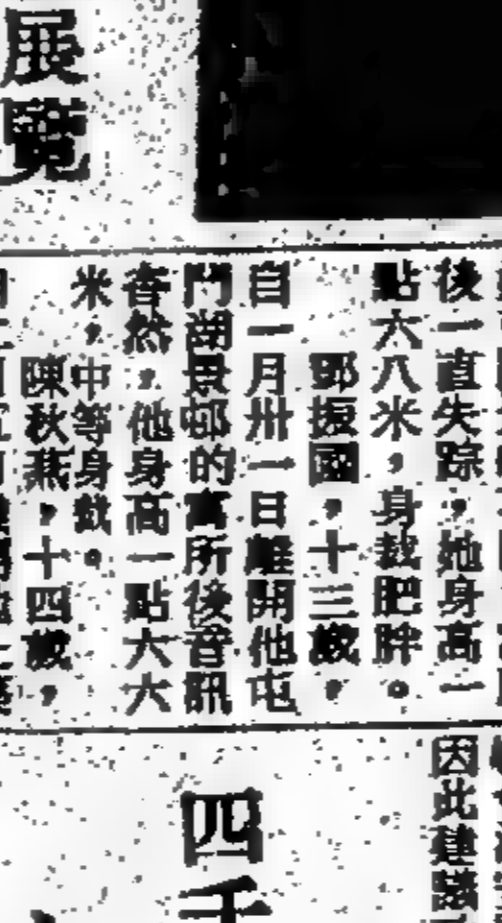 展覽
後一直失踪，她身高一
點六八米，身裁肥胖。
鄧振國，十三歲，
自一月卅一日離開他屯
門湖景邨的寓所後音訊
杳然，他身高一點六六
米，中等身裁。
陳秋燕，十四歲，
因此建議
四千